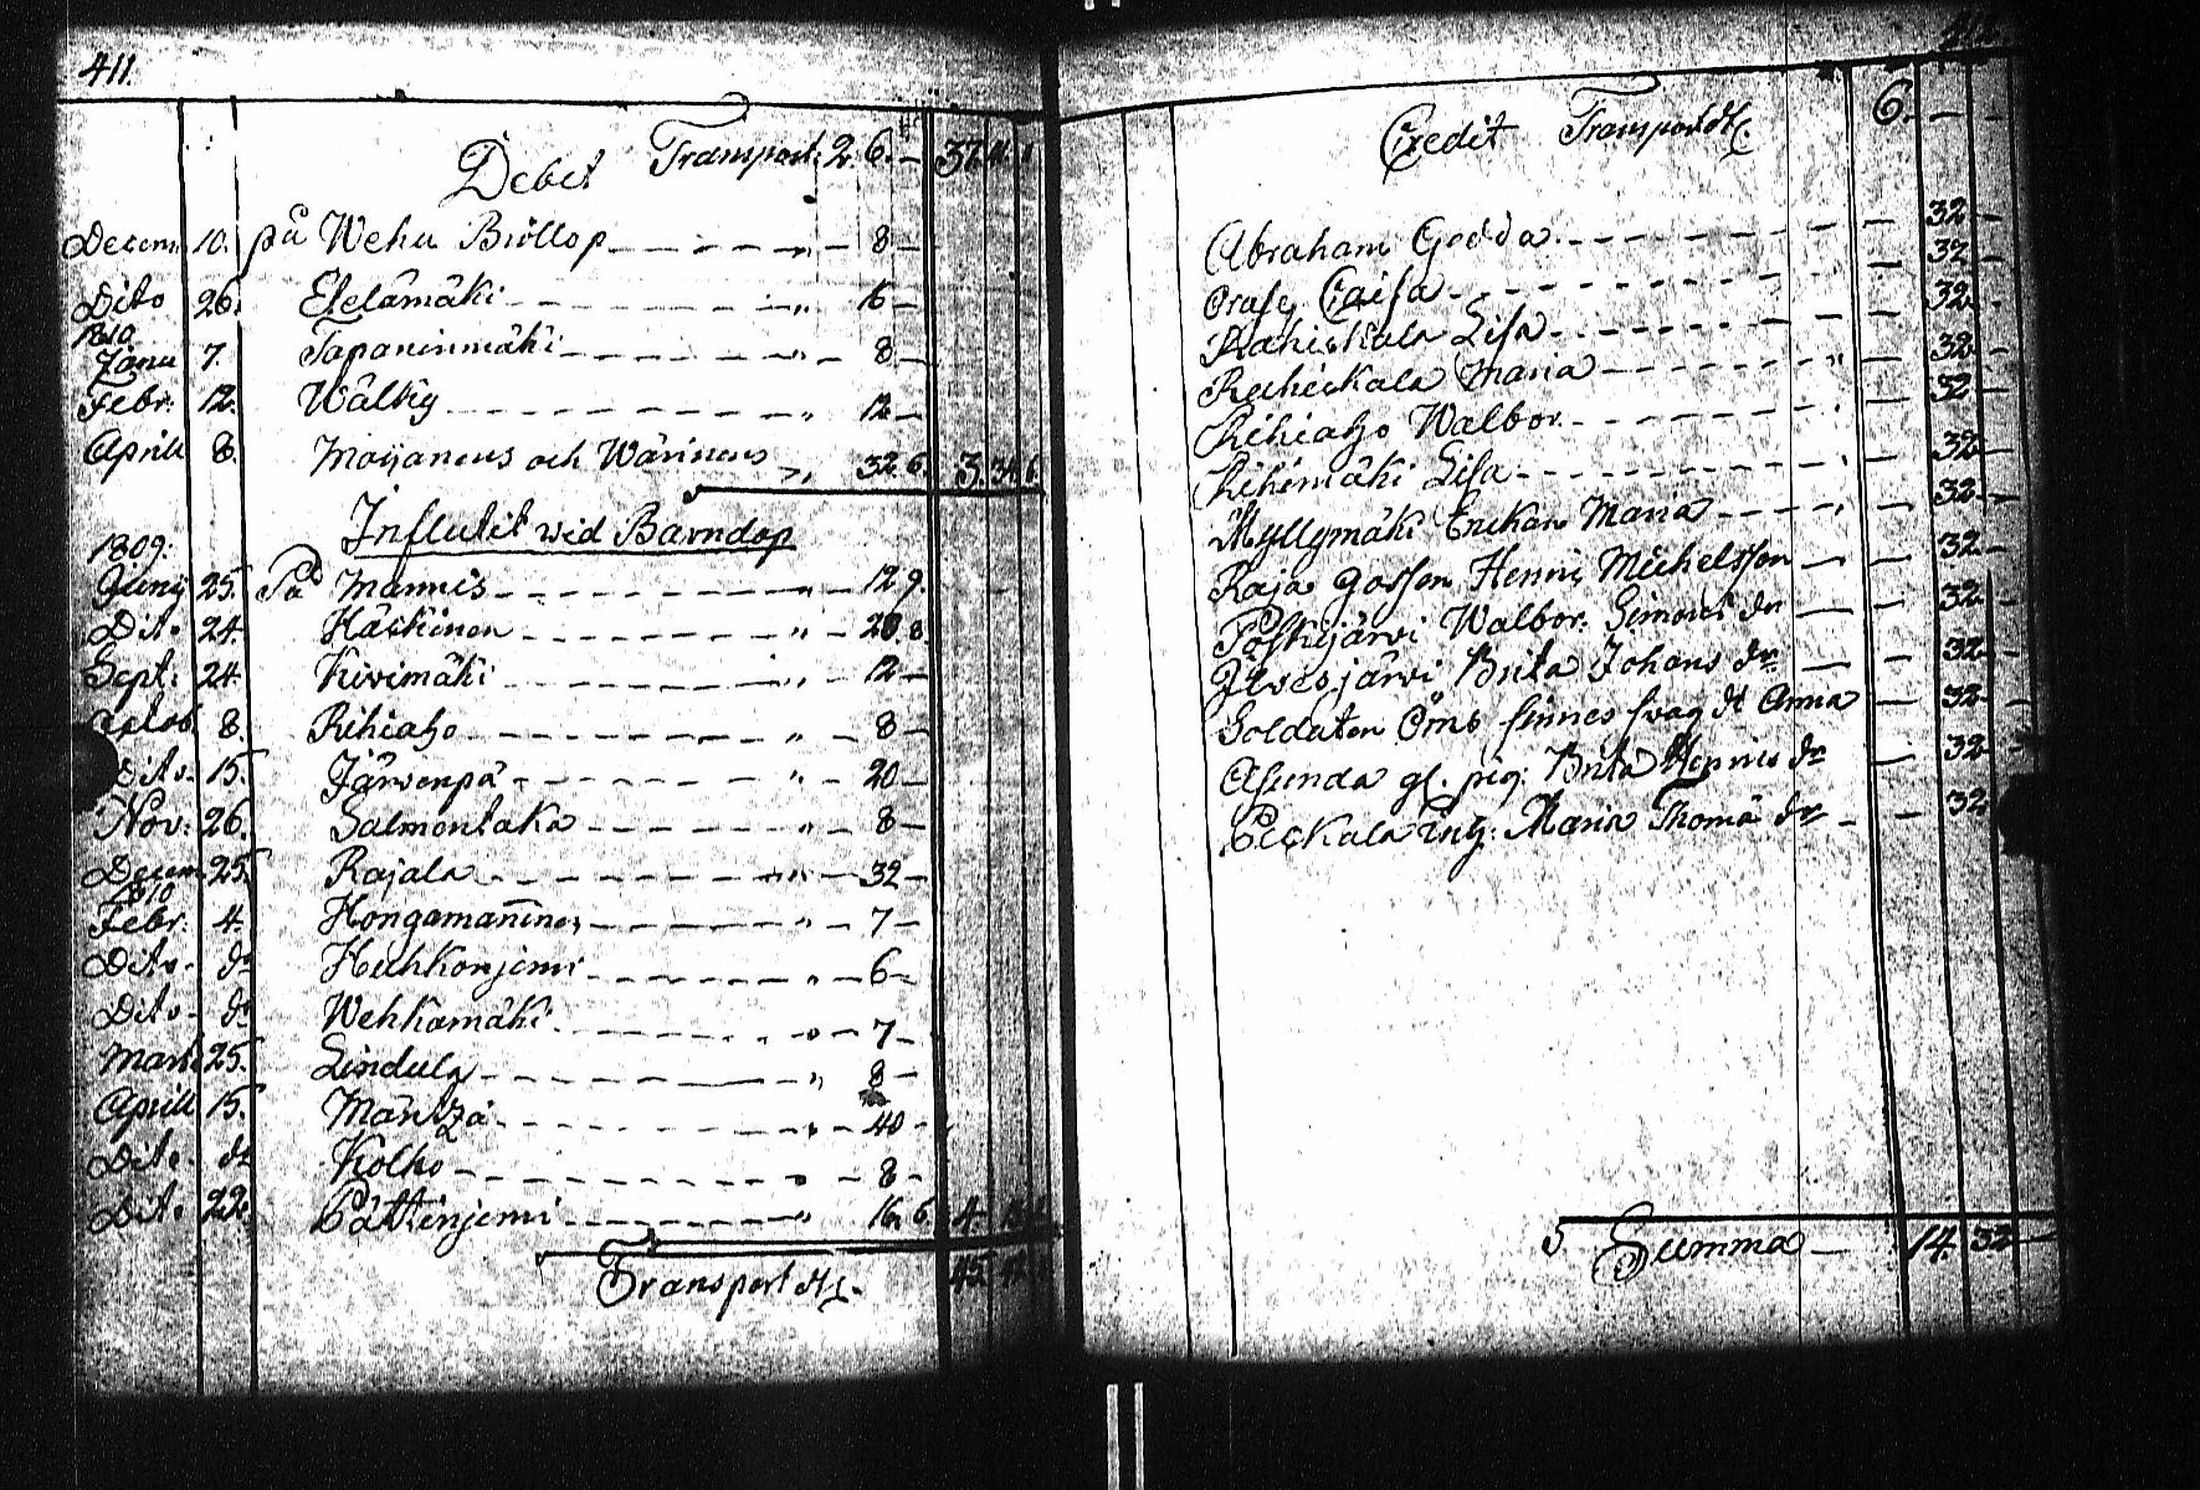 411.
Debet Transport. 2. 6. — 37.
Decem. 10. på Wehu Bröllop „ 8 —
Dito 26. Etelämäki „ 16 —
1810
Janu 7. Tapaninmäki „ 8 —
Febr. 12. Wälky „ 12 —
Aprill 8. Moijanens och Wärinens „ 32. 6. 3. 34. 6.
Influtit wid Barndop
1809:
Junij 25. På Mannis „ 12 9.
Dito 24. Häckinen „ 20. 8.
Sept: 24. Kivimäki „ 12 —
octob. 8. Rihiaho „ 8 —
Dito 15. Järvenpä „ 20 —
Nov: 26. Salmentaka „ 8 —
Decem. 25. Rajala „ 32 —
1810
Febr: 4. Hongamanines „ 7 —
Dito do Huhkonjemi „ 6 —
Dito do Wehkamäki „ 7 —
Marti 25. Lindula „ 8 —
Aprill 15. Mäntzä „ 40 —
Dito do Kolho „ 8 —
Dito 22. Pättinjemi „ 16. 6. 4.
Transport 45.
Credit Transport 6. — —
Abraham Gedda — 32 —
Caisa — 32 —
Lisa — 32 —
Maria — 32 —
Rihiaho Walbor. — 32 —
Rihimäki Lisa — 32 —
Myllymäki Enckan Maria — 32 —
Raja gossen Henric Michelsson — 32 —
Walbor. Simons dr — 32 —
Ilvesjärvi Brita Johans dr — 32 —
Soldaten Öms Anna — 32 —
Asunda gl. pig. Brita Henrics dr — 32 —
Peckala Inh: Maria Thomæ dr — 32
Summa — 14 32 —